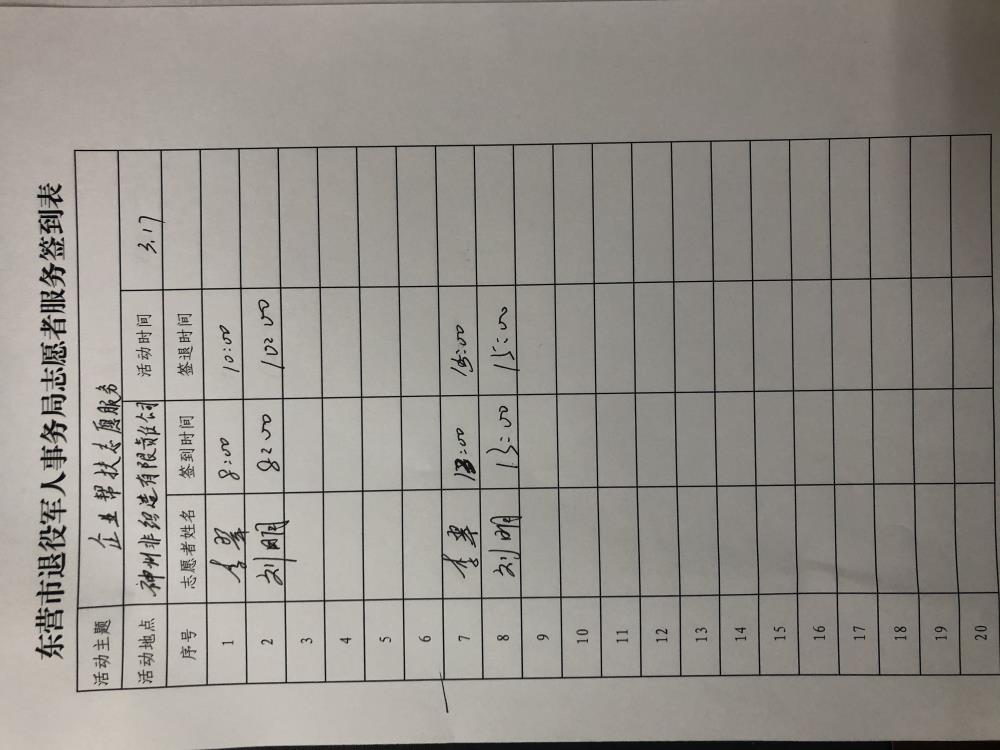 东营市退役军人事务局志愿者服务签到表
活动主题 企业帮扶志愿服务
活动地点 神州非织造有限责任公司 活动时间 3.17
序号 志愿者姓名 签到时间 签退时间
1 李翠 8:00 10:00
2 刘明 8:00 10:00
3
4
5
6
7 李翠 13:00 15:00
8 刘明 13:00 15:00
9
10
11
12
13
14
15
16
17
18
19
20